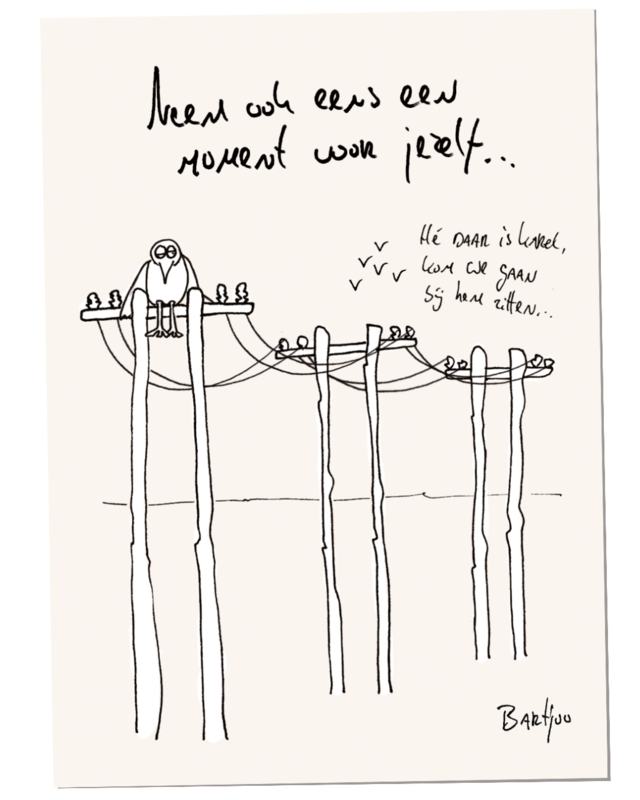 Neem ook eens een
moment voor jezelf...
Hé DAAR is Karel,
kom we gaan
bij hem zitten...
BARtjuu